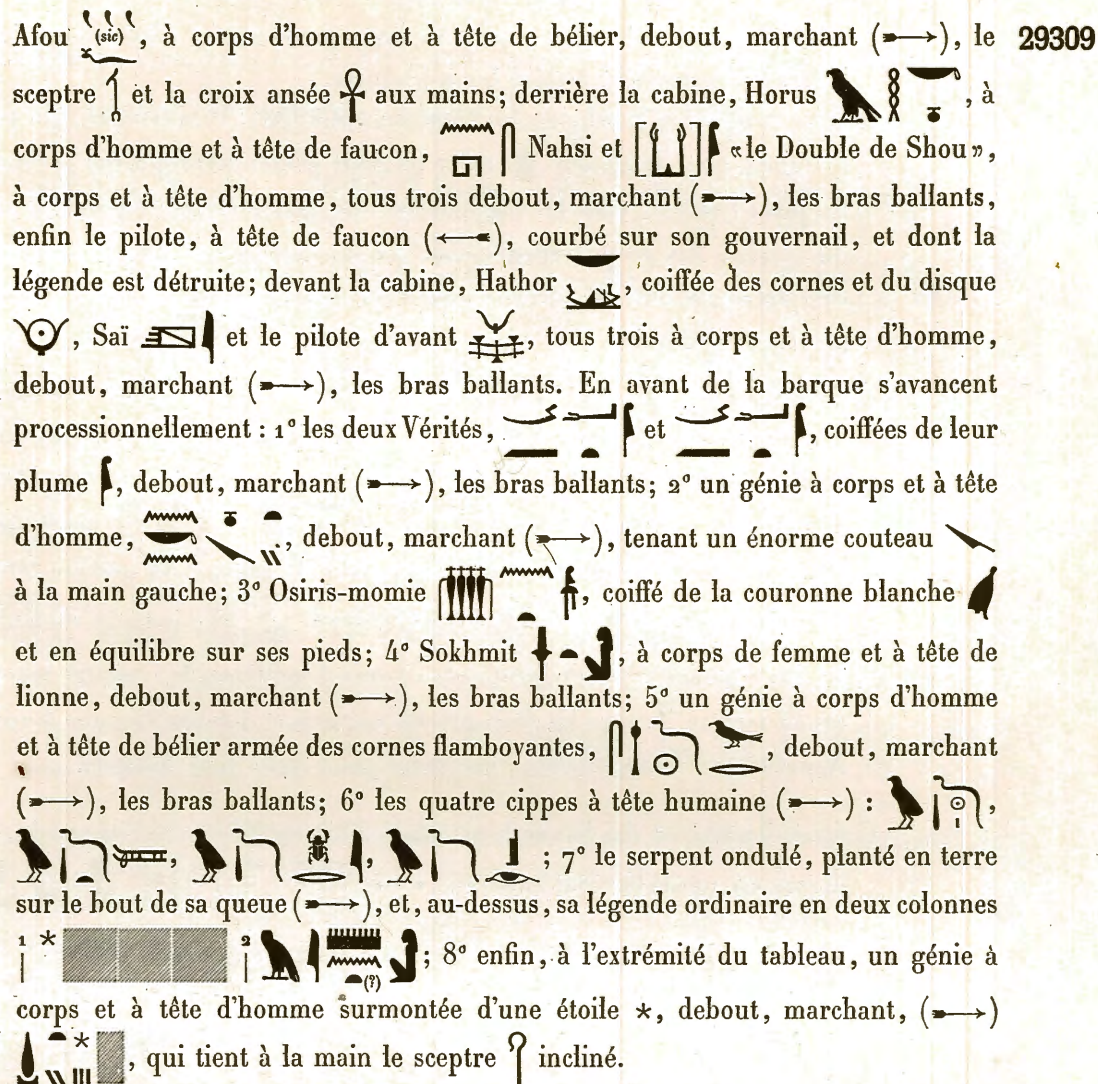 Afou (sic), à corps d'homme et à tête de bélier, debout, marchant (➳), le 29309
sceptre et la croix ansée ☥ aux mains; derrière la cabine, Horus , à
corps d'homme et à tête de faucon, Nahsi et [ ] «le Double de Shou»,
à corps et à tête d'homme, tous trois debout, marchant (➳), les bras ballants,
enfin le pilote, à tête de faucon (←), courbé sur son gouvernail, et dont la
légende est détruite; devant la cabine, Hathor , coiffée des cornes et du disque
, Saï et le pilote d'avant , tous trois à corps et à tête d'homme,
debout, marchant (➳), les bras ballants. En avant de la barque s'avancent
processionnellement : 1° les deux Vérités, et , coiffées de leur
plume , debout, marchant (➳), les bras ballants; 2° un génie à corps et à tête
d'homme, , debout, marchant (➳), tenant un énorme couteau
à la main gauche; 3° Osiris-momie , coiffé de la couronne blanche
et en équilibre sur ses pieds; 4° Sokhmit , à corps de femme et à tête de
lionne, debout, marchant (➳), les bras ballants; 5° un génie à corps d'homme
et à tête de bélier armée des cornes flamboyantes, , debout, marchant
(➳), les bras ballants; 6° les quatre cippes à tête humaine (➳) : ,
, , ; 7° le serpent ondulé, planté en terre
sur le bout de sa queue (➳), et, au-dessus, sa légende ordinaire en deux colonnes
1 * 2 (?) ; 8° enfin, à l'extrémité du tableau, un génie à
corps et à tête d'homme surmontée d'une étoile *, debout, marchant, (➳)
* , qui tient à la main le sceptre incliné.